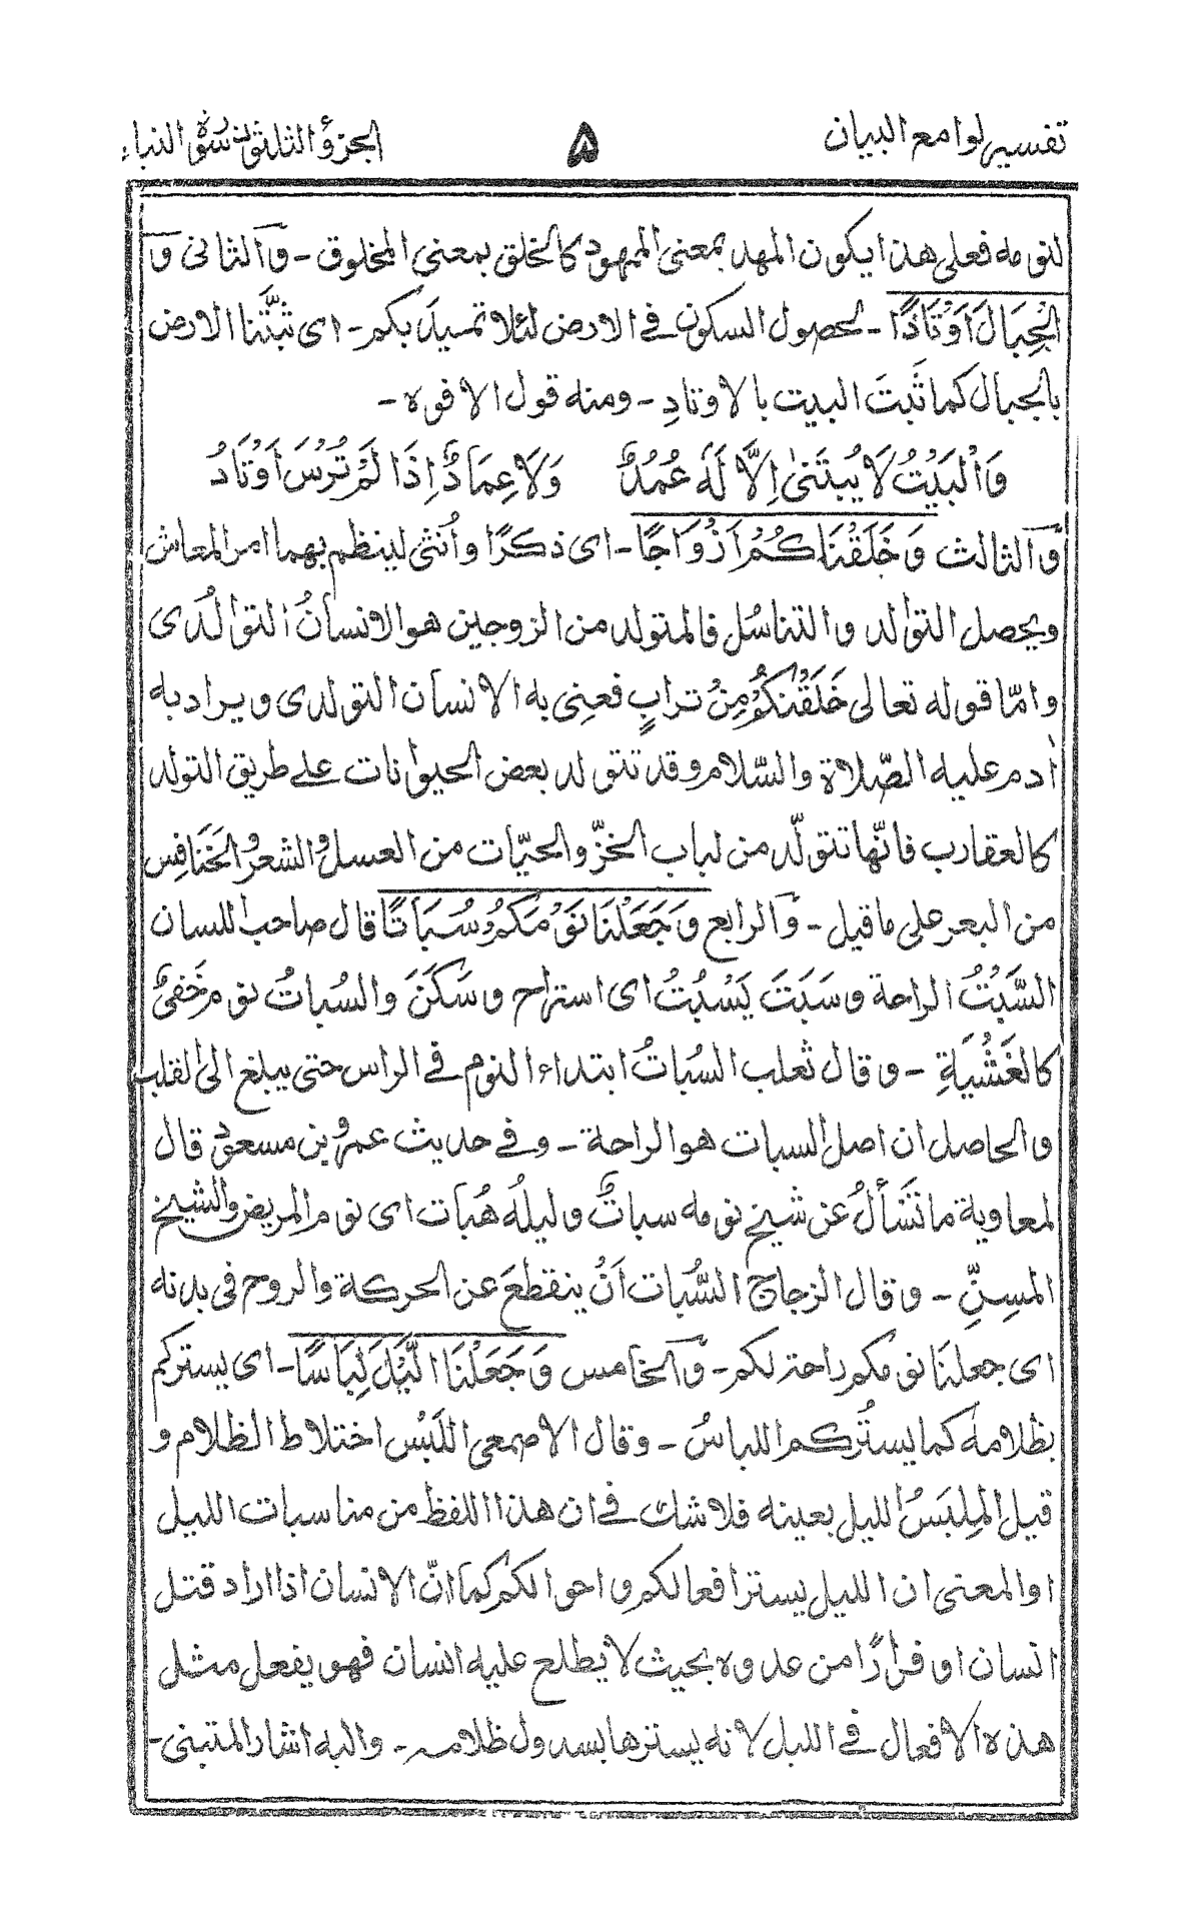 تفسير لوامع البيان
۵
الجزؤ الثلثون سورة النباء
لنومه فعلى هذا يكون المهد بمعنى الممهود كالخلق بمعنى المخلوق - والثانى وَ
الْجِبَالَ اَوْتَادًا - لحصول السكون فى الارض لئلا تميدَ بكم - اى ثبَّتنا الارض
بالجبال كما ثَبتَ البيت بالاوتادِ - ومنه قول الافوه -
وَالْبَيْتُ لَا يُبتَنىٰ اِلَّا لَهٗ عُمُدٌ وَلَا عِمَادٌ اِذَا لَمْ تُرْسَ اَوْتَادُ
والثالث وَخَلَقْنَاكُمْ اَزْوَاجًا - اى ذكرًا واُنثى لينظم بهما امر المعاش
ويحصل التوالد والتناسُل فالمتولد من الزوجين هو الانسانُ التوالُدى
وامّا قوله تعالى خَلَقْنٰكُمْ مِنْ ترابٍ فعنِى به الانسان التولدى ويراد به
اٰدم عليه الصّلاة والسّلام وقد تتولد بعض الحيوانات على طريق التولد
كالعقارب فانّها تتولّد من لباب الخزّ والحيّات من العسل والشعر والخَنَافِس
من البعر على ما قيل - والرابع وَجَعَلْنَا نَوْمَكُمْ سُبَاتًا قال صاحب اللسان
السَّبْتُ الراحة وسَبَتَ يَسْبُتُ اى استراح وسَكَنَ والسُباتُ نوم خَفىٌّ
كالغَشْيَةِ - وقال ثعلب السُباتُ ابتداء النوم فى الراس حتى يبلغ الى القلب
والحاصل ان اصل السبات هو الراحة - وفى حديث عمرو بن مسعود قال
لمعاوية ما تَسْألُ عن شيخ نومه سباتٌ وليلُه هُبات اى نوم المريض والشيخ
المسِنِّ - وقال الزجاج السُّبات اَنْ ينقطعَ عن الحركة والروح فى بدنه
اى جعلنَا نومكم راحة لكم - والخامس وَجَعَلْنَا اللَّيْلَ لِبَاسًا - اى يستركم
بظلامهٖ كما يستُركم اللباسُ - وقال الاصمعى اللَبْس اختلاط الظلام و
قيل المِلبَسُ الليل بعينه فلا شك فى ان هذا اللفظ من مناسبات الليل
او المعنى ان الليل يستر افعالكم واحوالكم كما انّ الانسان اذا اراد قتل
انسان او فرارًا من عدوه بحيث لا يطلع عليه انسان فهو يفعل مثل
هذه الافعال فى الليل لانه يسترها بسدول ظلامه - واليه اشار المتبنى -